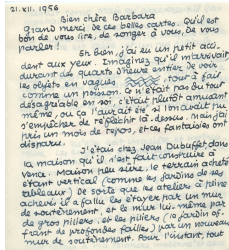 21.XII.1956
Bien chère Barbara
grand merci de ces belles cartes. Qu'il est
bon de vous lire, de songer à vous, de vous
parler !
Eh bien, j'ai eu un petit acci-
dent aux yeux. Imaginez qu'il m'arrivait
durant des quarts d'heure entiers de voir
les objets en vagues, tout à fait
comme un poisson. Ce n'était pas du tout
désagréable en soi, c'était plutôt amusant
même, ou ça l'aurait été si l'on avait pu
s'empêcher de réfléchir là-dessus, mais j'ai
pris un mois de repos, et ces fantaisies ont
disparu.
J'étais chez Jean Dubuffet, dans
la maison qu'il s'est fait construire à
Vence. Maison peu sûre, le terrain acheté
étant vertical (comme les jardins de ses
tableaux). De sorte que les ateliers à peine
achevés il a fallu les étayer par un mur
de soutènement, et le mur lui-même par
de gros piliers, et les piliers (le jardin of-
frant de profondes failles) par un nouveau
mur de soutènement. Pour l'instant, tout